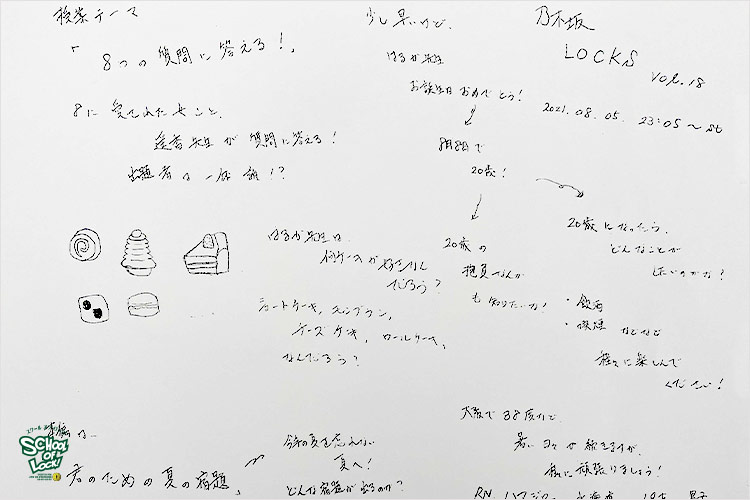 授業テーマ
「8つの質問に答える！」
8に変てみた女こと、
遥香先生が質問に答える！
出題者は一体誰！？
はるか先生は
何ケーキが好きなん
だろう？
ショートケーキ、モンブラン、
チーズケーキ、ロールケーキ、
なんだろう？
本編は…
君のための夏の宿題」
今年の夏を忘れない
夏へ！
どんな宿題が出るのか？
少し早いけど、
はるか先生
お誕生日おめでとう！
8月8日で
20歳！
20歳の
抱負なんか
も知りたいな！
乃木坂
LOCKS
vol.18
2021.08.05. 23:05〜 st
20歳になったら、
どんなことが
したいのかな？
・飲酒
・喫煙 などなど
程々に楽しんで
ください！
大阪で38度かで
暑い日々が続きますが、
共に頑張りましょう！
スクール オブ ロック
SCHOOL OF LOCK!